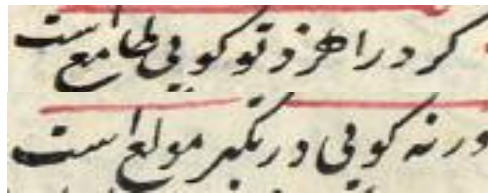 کر درامیزد تو کویی طامع است
ورنه کویی در تکبر مولع است